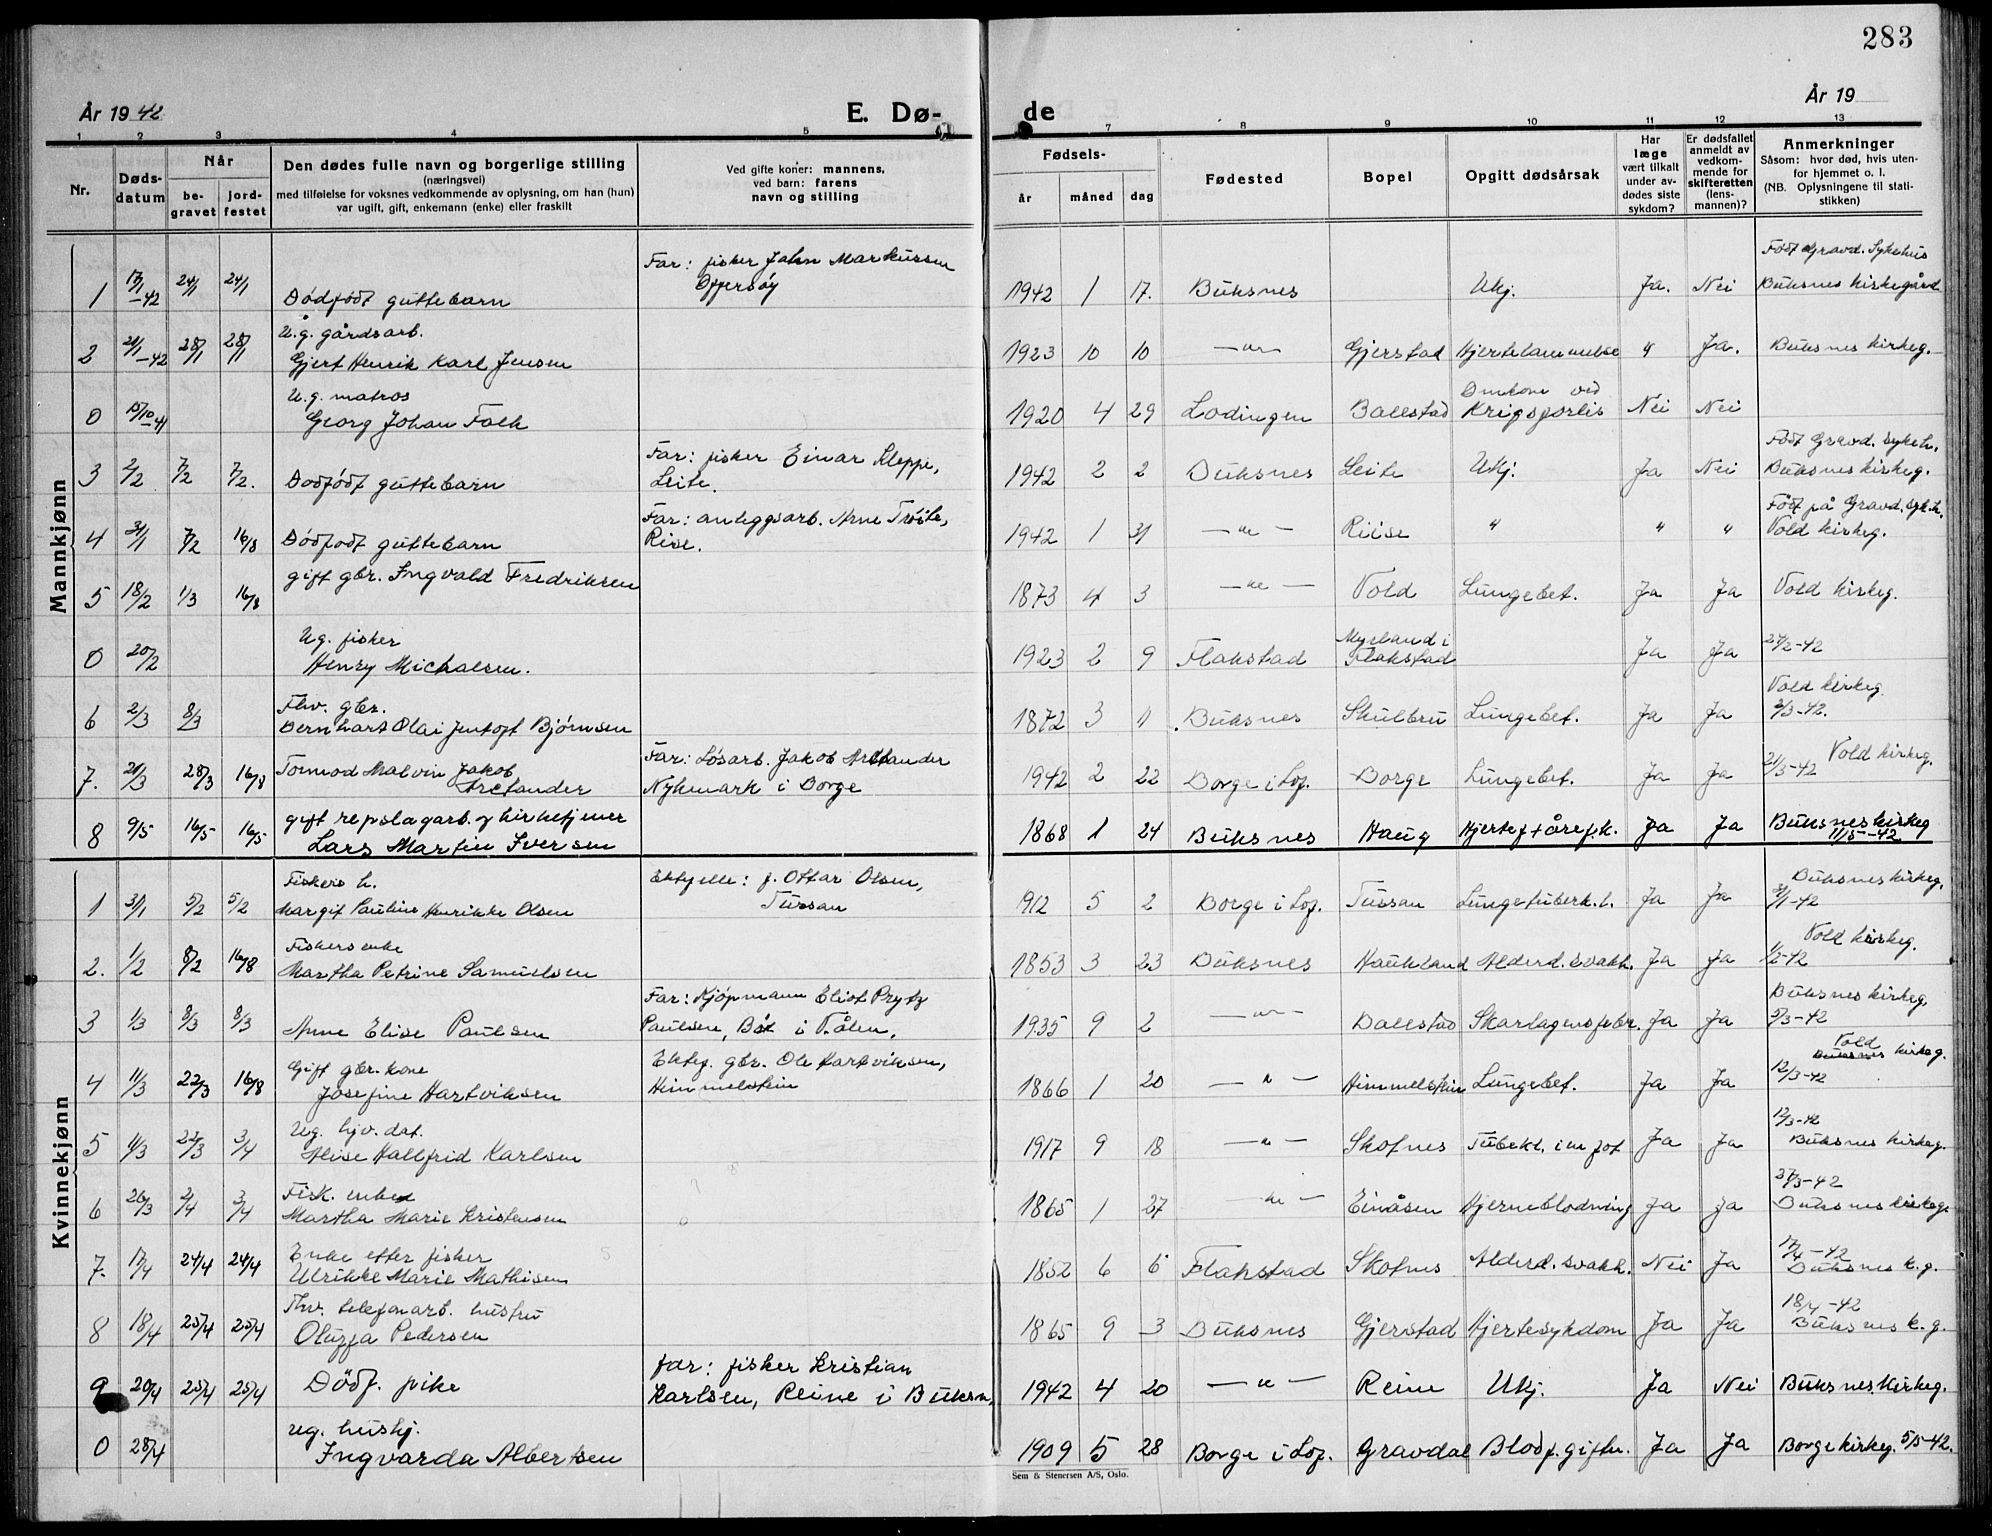 283
År 1942
E. Dø-
de
År 19
1 2 3 4 5 7 8 9 10 11 12 13
Nr.
Døds-
datum
Når
be-
gravet
jord-
festet
Den dødes fulle navn og borgerlige stilling
(næringsvei)
med tilføielse for voksnes vedkommende av oplysning, om han (hun)
var ugift, gift, enkemann (enke) eller fraskilt
Ved gifte koner: mannens,
ved barn: farens
navn og stilling
Fødsels-
år måned dag
Fødested
Bopel
Opgitt dødsårsak
Har
læge
vært tilkalt
under av-
dødes siste
sykdom?
Er dødsfallet
anmeldt av
vedkom-
mende for
skifteretten
(lens-
mannen)?
Anmerkninger
Såsom: hvor død, hvis uten-
for hjemmet o. l.
(NB. Oplysningene til stati-
stikken)
Mannkjønn
1 17/1 -42 24/1 24/1 Dødfødt guttebarn Far: fisker John Markussen Offersøy 1942 1 17. Buksnes Ukj. Ja. Nei Født Gravd. Sykehus Buksnes kirkegård
2 21/1 -42 28/1 28/1 U.g. gårdsarb. Gjert Henrik Karl Jensen 1923 10 10 —"— Gjerstad Hjertelammelse " Ja. Buksnes kirkeg.
0 15/10 -41 U.g. matros Georg Johan Falk 1920 4 29 Lødingen Ballstad Omkom ved Krigsforlis Nei Nei
3 2/2 7/2 7/2. Dødfødt guttebarn Far: fisker Einar Kleppe, Leite. 1942 2 2 Buksnes Leite Ukj. Ja Nei Født Gravd. sykeh. Buksnes kirkeg.
4 31/1 7/2 16/8 Dødfødt guttebarn Far: anleggsarb. Arne Trøite, Rise. 1942 1 31 —"— Riise " " " Født på Gravd. syk.h. Vold kirkeg.
5 18/2 1/3 16/8 gift gbr. Ingvald Fredriksen 1873 4 3 —"— Vold Lungebet. Ja Ja Vold kirkeg.
0 20/2 Ug. fisker Henry Michalsen. 1923 2 9 Flakstad Myrland i Flakstad Ja Ja 24/2-42
6 2/3 8/3 Fhv. gbr. Bernhart Olai Jentoft Bjørnsen 1872 3 11 Buksnes Skulbru Lungebet. Ja Ja Vold kirkeg. 3/3-42.
7. 21/3 28/3 16/8 Tormod Malvin Jakob Arctander Far: Løsarb. Jakob Arctander Nykmark i Borge 1942 2 22 Borge i Lof. Borge Lungebet. Ja Ja 21/3-42 Vold kirkeg.
8 9/5 16/5 16/5 gift repslagarb. og kirketjener Lars Martin Iversen 1868 1 24 Buksnes Haug Hjertef + årefk. Ja Ja Buksnes kirkeg 11/5-42
Kvinnekjønn
1 31/1 5/2 5/2 Fiskers h. Margit Pauline Henrikke Olsen Ektefelle: f. Ottar Olsen, Tussan 912 5 2 Borge i Lof. Tussan Lungetuberk.l. Ja Ja Buksnes kirkeg. 31/1-42
2. 1/2 8/2 16/8 Fiskers enke Martha Petrine Samuelsen 1853 3 23 Buksnes Haukland Alderd. svakh. Ja Ja Vold kirkeg. 1/2-42
3 1/3 8/3 8/3 Anne Elise Paulsen Far: Kjøpmann Eliot Prytz Paulsen, Bøl i V.ålen, 1935 9 2 —"— Ballstad Skarlagensfeber. Ja Ja Buksnes kirkeg. 5/3-42
4 11/3 22/3 16/8 Gift gbr. kone Josefine Hartviksen Ektef. gbr. Ole Hartviksen, Himmelstein 1866 1 20 —"— Himmelstein Lungebet. Ja Ja Vold Buksnes kirkeg. 12/3-42
5 11/3 22/3 3/4 Ug. hjv. dat. Alise Hallfrid Karlsen 1917 9 18 —"— Skotnes Tubekl. i en fot Ja Ja 12/3-42 Buksnes kirkeg.
6 26/3 2/4 3/4 Fisk. enke Martha Marie Kristensen 1865 1 27 —"— Einåsen Hjerneblodning Ja Ja 27/3-42 Buksnes kirkeg.
7. 17/4 24/4 24/4 Enke efter fisker Ulrikke Marie Mathisen 1852 6 6 Flakstad Skotnes Alderd. svakh. Nei Ja 17/4-42 Buksnes k.g.
8 18/4 25/4 25/4 Fhv. telefonarb. hustru Oluffa Pedersen 1865 9 3 Buksnes Gjerstad Hjertesykdom Ja Ja 18/4-42 Buksnes k.g.
9 20/4 25/4 25/4 Dødf. pike far: fisker Kristian Karlsen, Reine i Buksn. 1942 4 20 —"— Reine Ukj. Ja Nei Buksnes kirkeg.
0 28/4 ug. hushj. Ingvarda Albertsen 1909 5 28 Borge i Lof. Gravdal Blodf. giftn. Ja Ja Borge kirkeg. 5/5-42.
Sem & Stenersen A/S, Oslo.